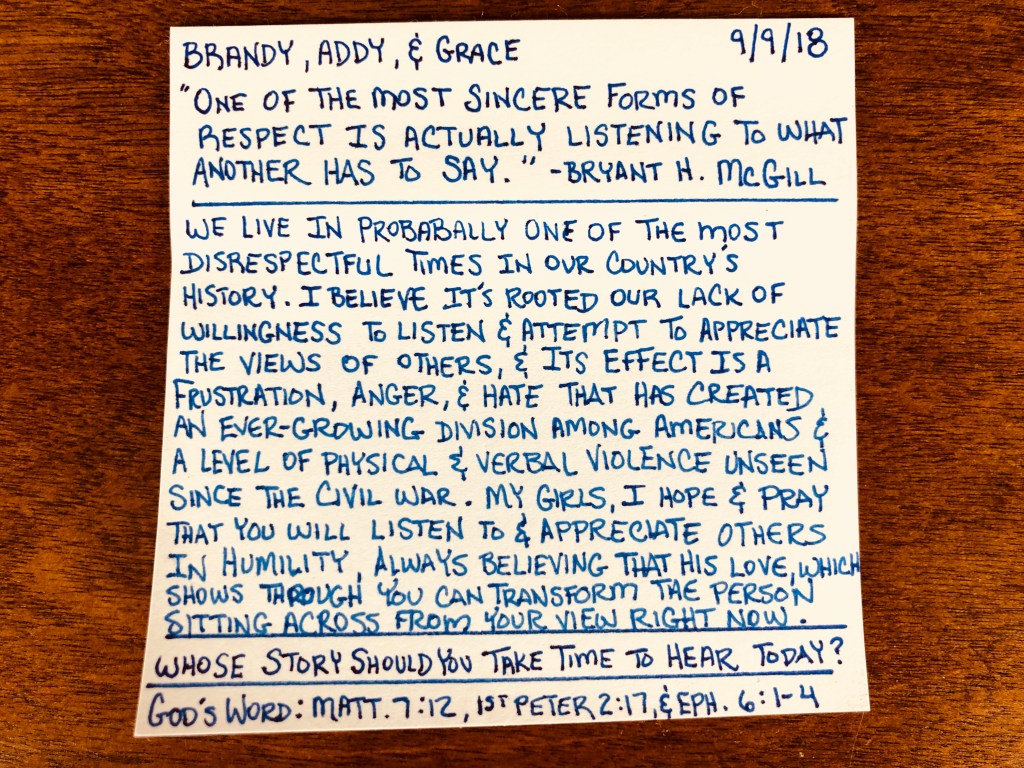 BRANDY, ADDY, & GRACE 9/9/18
"ONE OF THE MOST SINCERE FORMS OF
RESPECT IS ACTUALLY LISTENING TO WHAT
ANOTHER HAS TO SAY." -BRYANT H. McGILL
WE LIVE IN PROBABALLY ONE OF THE MOST
DISRESPECTFUL TIMES IN OUR COUNTRY'S
HISTORY. I BELIEVE IT'S ROOTED OUR LACK OF
WILLINGNESS TO LISTEN & ATTEMPT TO APPRECIATE
THE VIEWS OF OTHERS, & ITS EFFECT IS A
FRUSTRATION, ANGER, & HATE THAT HAS CREATED
AN EVER-GROWING DIVISION AMONG AMERICANS &
A LEVEL OF PHYSICAL & VERBAL VIOLENCE UNSEEN
SINCE THE CIVIL WAR. MY GIRLS, I HOPE & PRAY
THAT YOU WILL LISTEN TO & APPRECIATE OTHERS
IN HUMILITY, ALWAYS BELIEVING THAT HIS LOVE, WHICH
SHOWS THROUGH YOU CAN TRANSFORM THE PERSON
SITTING ACROSS FROM YOUR VIEW RIGHT NOW.
WHOSE STORY SHOULD YOU TAKE TIME TO HEAR TODAY?
GOD'S WORD: MATT. 7:12, 1ST PETER 2:17, & EPH. 6:1-4